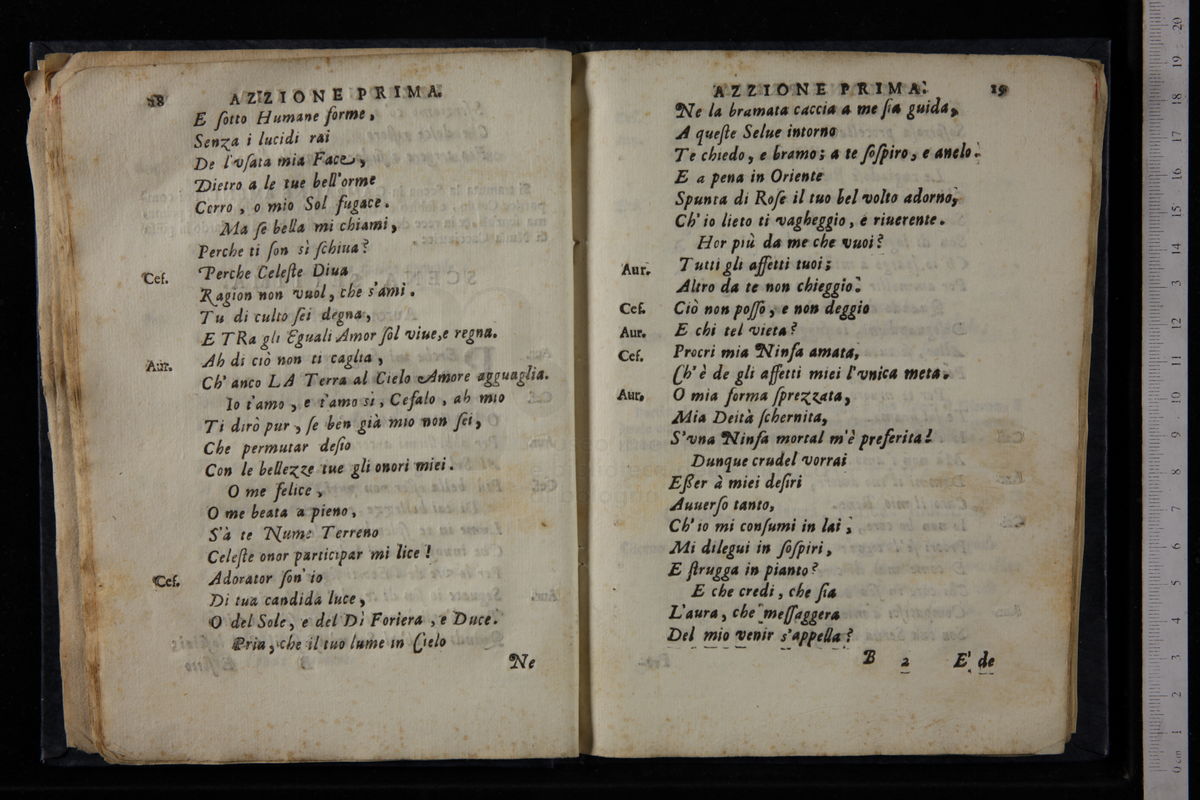 18 AZZIONE PRIMA.
E ſotto Humane forme,
Senza i lucidi rai
De l'vſata mia Face,
Dietro a le tue bell'orme
Corro, o mio Sol fugace.
Ma ſe bella mi chiami,
Perche ti ſon sì ſchiua?
Ceſ. Perche Celeſte Diua
Ragion non vuol, che s'ami.
Tu di culto ſei degna,
E TRa gli Eguali Amor ſol viue, e regna.
Aur. Ah di ciò non ti caglia,
Ch' anco LA Terra al Cielo Amore agguaglia.
Io t'amo, e t'amo sì, Cefalo, ah mio
Ti dirò pur, ſe ben già mio non ſei,
Che permutar deſio
Con le bellezze tue gli onori miei.
O me felice,
O me beata a pieno,
S'à te Nume Terreno
Celeſte onor participar mi lice!
Ceſ. Adorator ſon' io
Di tua candida luce,
O del Sole, e del Dì Foriera, e Duce.
Pria, che il tuo lume in Cielo
Ne
AZZIONE PRIMA. 19
Ne la bramata caccia a me ſia guida,
A queſte Selue intorno
Te chiedo, e bramo; a te ſoſpiro, e anelo.
E a pena in Oriente
Spunta di Roſe il tuo bel volto adorno,
Ch' io lieto ti vagheggio, e riuerente.
Hor più da me che vuoi?
Aur. Tutti gli affetti tuoi;
Altro da te non chieggio.
Ceſ. Ciò non poſſo, e non deggio
Aur. E chi tel vieta?
Ceſ. Procri mia Ninfa amata,
Ch' è de gli affetti miei l'vnica meta.
Aur. O mia forma ſprezzata,
Mia Deità ſchernita,
S'vna Ninfa mortal m'è preferita!
Dunque crudel vorrai
Eſſer à miei deſiri
Auuerſo tanto,
Ch' io mi conſumi in lai,
Mi dilegui in ſoſpiri,
E ſtrugga in pianto?
E che credi, che ſia
L'aura, che meſſaggera
Del mio venir s'appella?
B 2 E' de